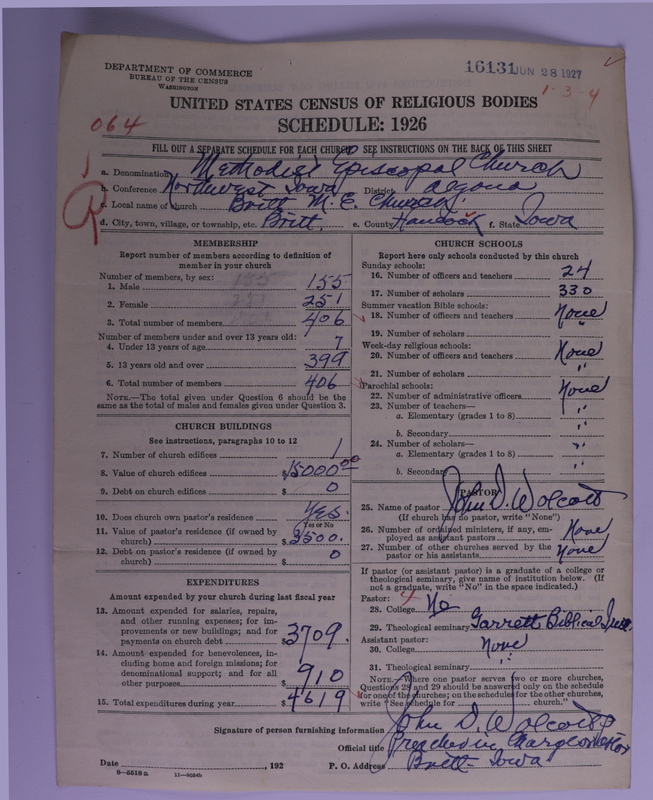 DEPARTMENT OF COMMERCE
BUREAU OF THE CENSUS
WASHINGTON
16131 JUN 28 1927
1-3-4
UNITED STATES CENSUS OF RELIGIOUS BODIES
SCHEDULE: 1926
064
FILL OUT A SEPARATE SCHEDULE FOR EACH CHURCH. SEE INSTRUCTIONS ON THE BACK OF THIS SHEET
a. Denomination Methodist Episcopal Church
b. Conference Northwest Iowa District Algona
c. Local name of church Britt M. E. Church
d. City, town, village, or township, etc. Britt. e. County Hancock f. State Iowa
MEMBERSHIP
Report number of members according to definition of
member in your church
Number of members, by sex:
1. Male 155
2. Female 251
3. Total number of members 406
Number of members under and over 13 years old:
4. Under 13 years of age 7
5. 13 years old and over 399
6. Total number of members 406
NOTE.—The total given under Question 6 should be the
same as the total of males and females given under Question 3.
CHURCH BUILDINGS
See instructions, paragraphs 10 to 12
7. Number of church edifices 1
8. Value of church edifices $15000.00
9. Debt on church edifices $ 0
10. Does church own pastor's residence Yes.
Yes or No
11. Value of pastor's residence (if owned by
church) $3500.
12. Debt on pastor's residence (if owned by
church) $ 0
EXPENDITURES
Amount expended by your church during last fiscal year
13. Amount expended for salaries, repairs,
and other running expenses; for im-
provements or new buildings; and for
payments on church debt $3709.
14. Amount expended for benevolences, in-
cluding home and foreign missions; for
denominational support; and for all
other purposes $ 910
15. Total expenditures during year $4619
CHURCH SCHOOLS
Report here only schools conducted by this church
Sunday schools:
16. Number of officers and teachers 24
17. Number of scholars 330
Summer vacation Bible schools:
18. Number of officers and teachers None
19. Number of scholars "
Week-day religious schools:
20. Number of officers and teachers None
21. Number of scholars "
Parochial schools:
22. Number of administrative officers None
23. Number of teachers—
a. Elementary (grades 1 to 8) "
b. Secondary "
24. Number of scholars—
a. Elementary (grades 1 to 8) "
b. Secondary "
PASTOR
25. Name of pastor John D. Wolcott
(If church has no pastor, write "None")
26. Number of ordained ministers, if any, em-
ployed as assistant pastors None
27. Number of other churches served by the
pastor or his assistants None
If pastor (or assistant pastor) is a graduate of a college or
theological seminary, give name of institution below. (If
not a graduate, write "No" in the space indicated.)
Pastor:
28. College No
29. Theological seminary Garrett Biblical Inst
Assistant pastor:
30. College None
31. Theological seminary "
NOTE.—Where one pastor serves two or more churches,
Questions 28 and 29 should be answered only on the schedule
for one of the churches; on the schedules for the other churches,
write "See schedule for church."
Signature of person furnishing information John D. Wolcott
Official title Preacher in Charge
Date , 192 P. O. Address Britt - Iowa
8—5518 a 11—9524b